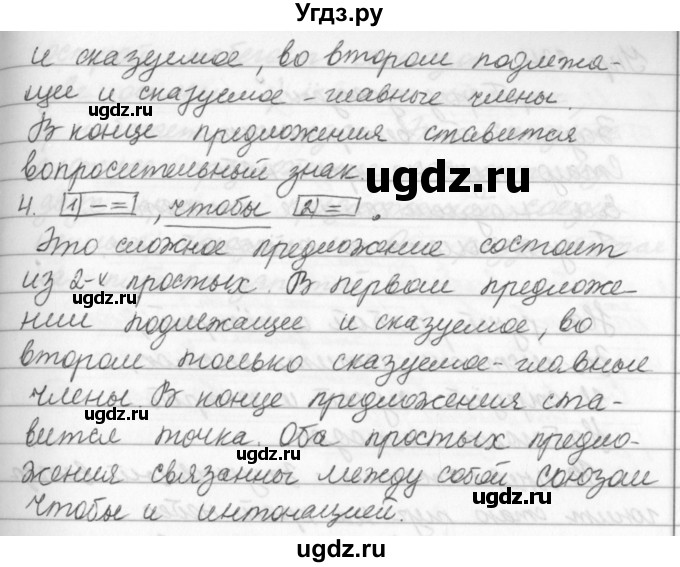 Угдз.ру
и сказуемое, во втором подлежа-
щее и сказуемое - главные члены.
В конце предложения ставится
вопросительный знак.
4. [1) – =], чтобы [2) =].
Это сложное предложение состоит
из 2-х простых. В первом предложе-
нии подлежащее и сказуемое, во
втором только сказуемое - главные
члены. В конце предложения ста-
вится точка. Оба простых предло-
жения связанны между собой союзом
чтобы и интонацией.
ugdz.ru
ugdz.ru
ugdz.ru
ugdz.ru
ugdz.ru
ugdz.ru
ugdz.ru
ugdz.ru